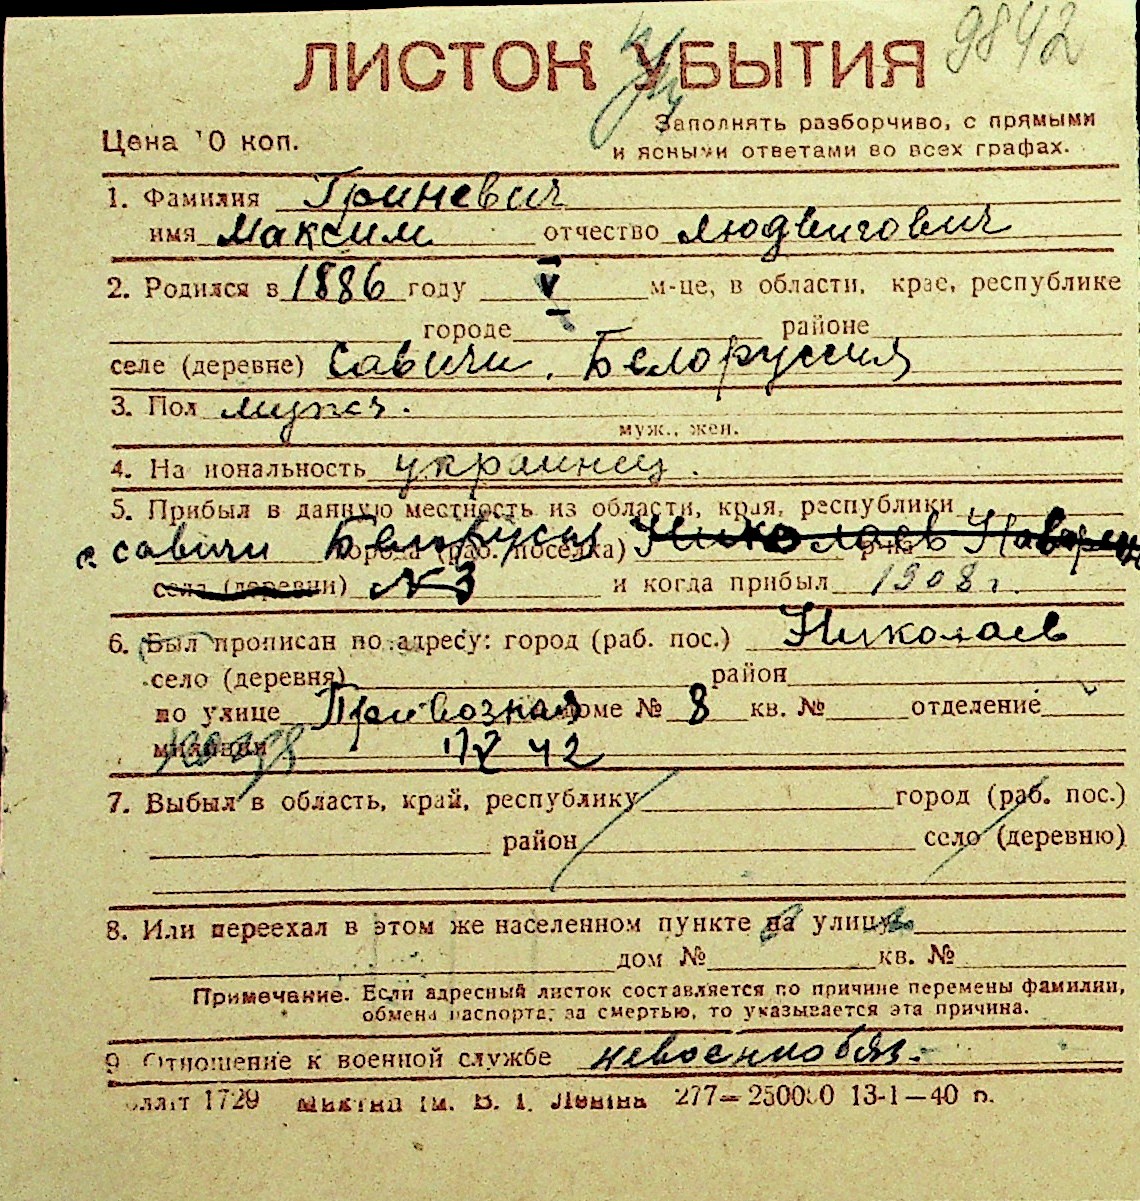 9842
ЛИСТОК УБЫТИЯ
Цена 10 коп.
Заполнять разборчиво, с прямыми
и ясными ответами во всех графах.
1. Фамилия Гриневич
имя Максим отчество Людвигович
2. Родился в 1886 году V м-це, в области, крае, республике
городе районе
селе (деревне) Савичи. Белоруссия
3. Пол мужч.
муж., жен.
4. На иональность украинец.
5. Прибыл в данную местность из области, края, республики
с савичи города (раб. поселка) Николаев р-на
села (деревни) №3 и когда прибыл 1908 г.
6. Был прописан по адресу: город (раб. пос.) Николаев
село (деревня) район
по улице Привозная доме № 8 кв. № отделение
милиции 42
7. Выбыл в область, край, республику город (раб. пос.)
район село (деревню)
8. Или переехал в этом же населенном пункте на улицу
дом № кв. №
Примечание. Если адресный листок составляется по причине перемены фамилии,
обмена паспорта, за смертью, то указывается эта причина.
9. Отношение к военной службе невоеннообяз.
1729 им. В. І. Леніна 277—250000 13-1—40 п.